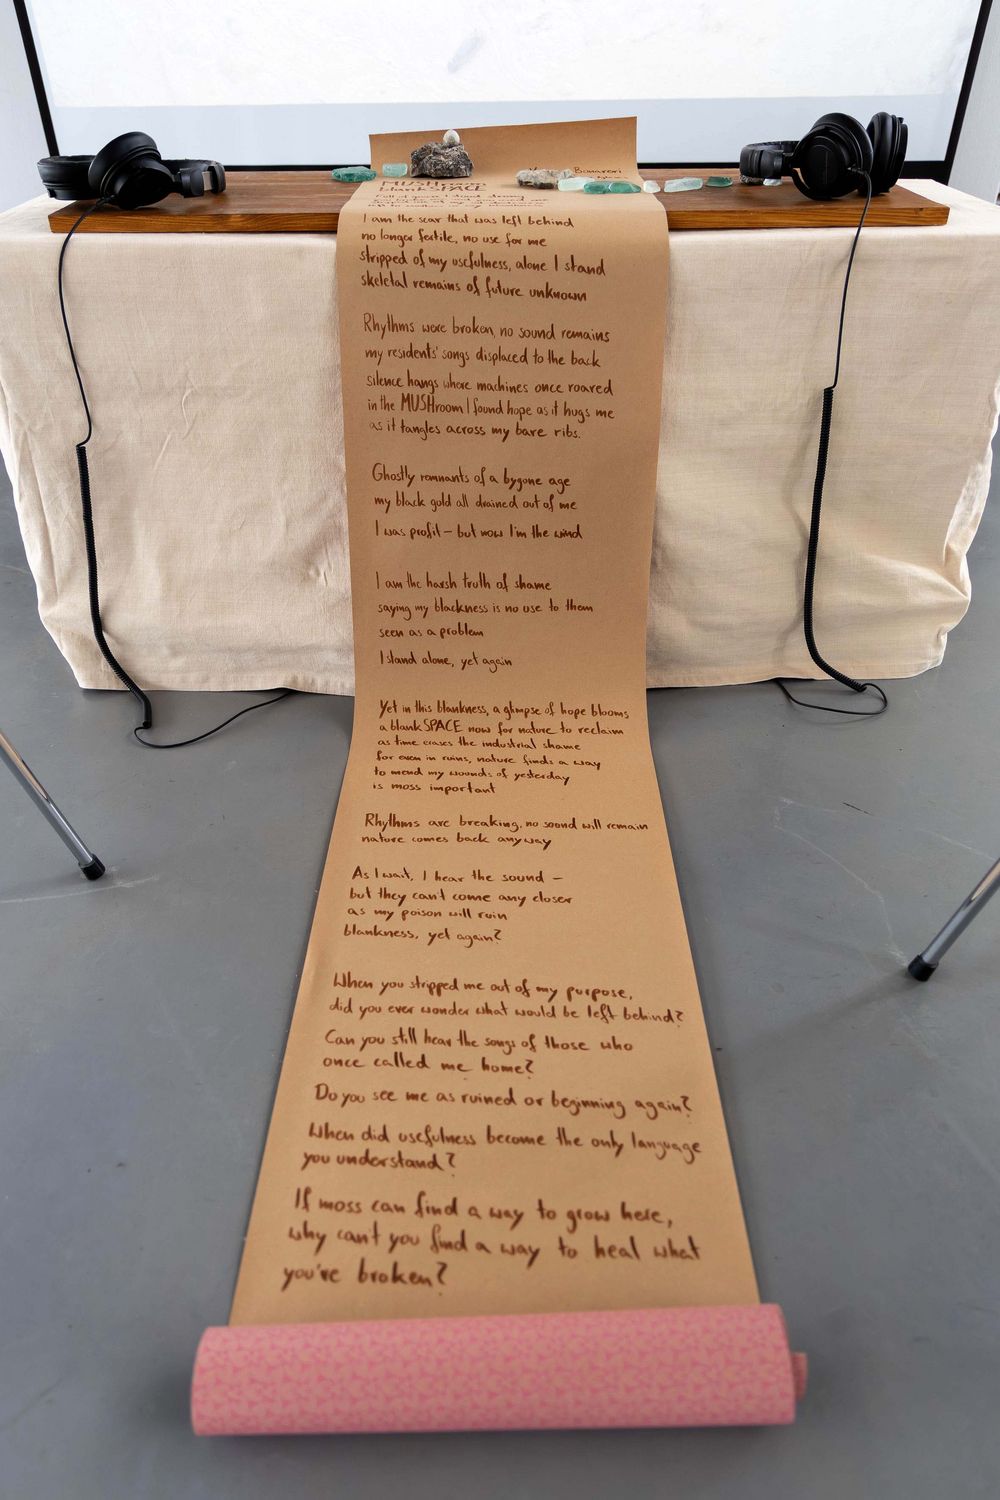 MUSHroom
blankSPACE
I am the scar that was left behind
no longer fertile, no use for me
stripped of my usefulness, alone I stand
skeletal remains of future unknown
Rhythms were broken, no sound remains
my residents' songs displaced to the back
silence hangs where machines once roared
in the MUSHroom I found hope as it hugs me
as it tangles across my bare ribs.
Ghostly remnants of a bygone age
my black gold all drained out of me
I was profit – but now I'm the wind
I am the harsh truth of shame
saying my blackness is no use to them
seen as a problem
I stand alone, yet again
Yet in this blankness, a glimpse of hope blooms
a blankSPACE now for nature to reclaim
as time erases the industrial shame
for even in ruins, nature finds a way
to mend my wounds of yesterday
is moss important
Rhythms are breaking, no sound will remain
nature comes back anyway
As I wait, I hear the sound –
but they can't come any closer
as my poison will ruin
blankness, yet again?
When you stripped me out of my purpose,
did you ever wonder what would be left behind?
Can you still hear the songs of those who
once called me home?
Do you see me as ruined or beginning again?
When did usefulness become the only language
you understand?
If moss can find a way to grow here,
why can't you find a way to heal what
you're broken?